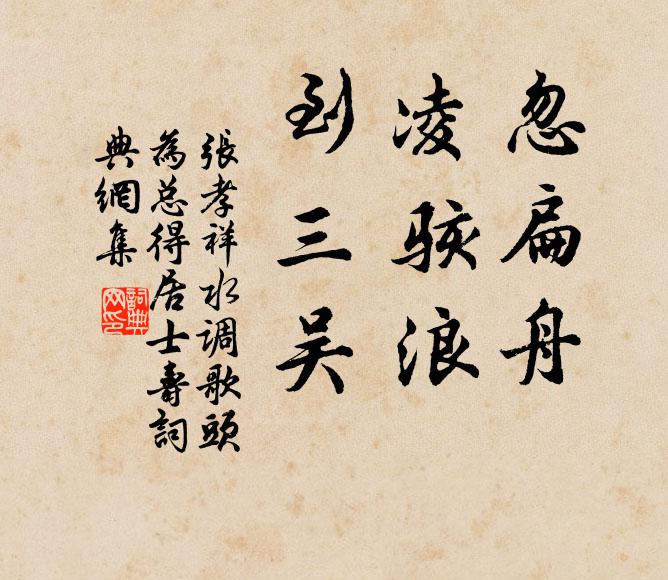 忽扁舟
凌骇浪
到三吴
張孝祥水调歌頭
為总得居士壽詞
典網集
詞典
网印